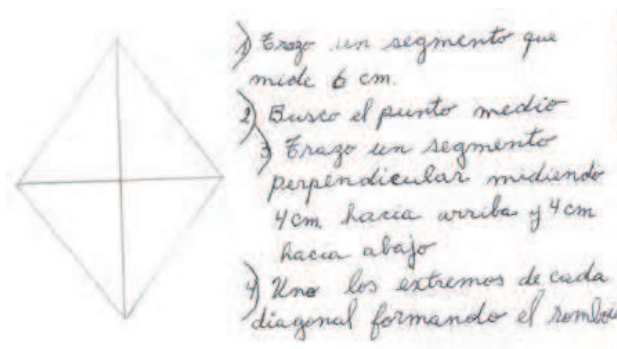 1) Trazo un segmento que
mide 6 cm.
2) Busco el punto medio
3) Trazo un segmento
perpendicular midiendo
4 cm hacia arriba y 4 cm
hacia abajo
4) Uno los extremos de cada
diagonal formando el rombo